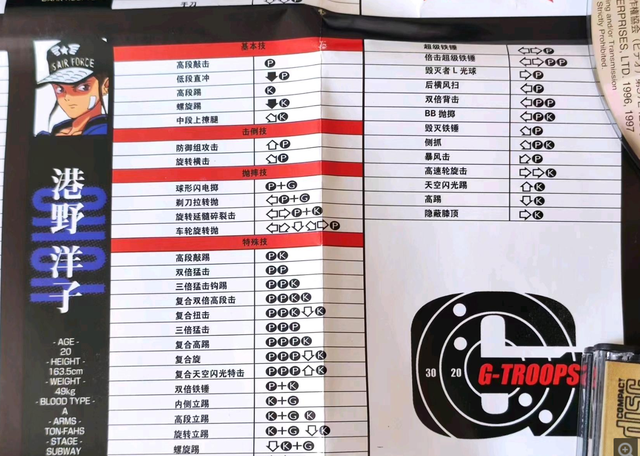 S AIR FORCE
港野 洋子
- AGE -
20
- HEIGHT -
163.5cm
- WEIGHT -
49kg
- BLOOD TYPE -
A
- ARMS -
TON-FAHS
- STAGE -
SUBWAY
基本技
高段敲击 P
低段直冲 ⬇P
高段踢 K
螺旋踢 ⬇K
中段上撩腿 ⇦K
击倒技
防御组攻击 ⇧P
旋转横击 ⇦P
抛摔技
球形闪电掷 P+G
剃刀拉转抛 ⇦P+G
旋转延髓碎裂击 ⇦⇨P+K
车轮旋转抛 ⇦⇨⇩⇦⇨P
特殊技
高段敲踢 PK
双倍猛击 PP
三倍猛击钩踢 PPK
复合双倍高段击 PPKK
复合扭击 PPK⇩K
三倍猛击 PPP
复合高踢 PPPK
复合旋 PPP⇩K
复合天空闪光特击 PPP⇧K
双倍铁锤 P+K
内侧立踢 K+G
高段立踢 K+G K
旋转立踢 K+G ⇩K
螺旋踢 ⇩K+G
超级铁锤 ⇦⇨P
倍击超级铁锤 ⇦⇨PP
毁灭者L光球 ⇨P
后横风扫 ⇦PK
双倍背击 ⇦PP
BB 抛掷 ⇦PK
毁灭铁锤 ⇦P
侧抓 ⇦PK
暴风击
高速轮旋击 ⇨⇨K
天空闪光踢 ⇧K
高踢 ⇩K
隐蔽膝顶 ⇨K
30 20
G-TROOPS
ERPRISES, LTD. 1996, 1997
ing and/or Transmission
Strictly Prohibited.
COMPACT